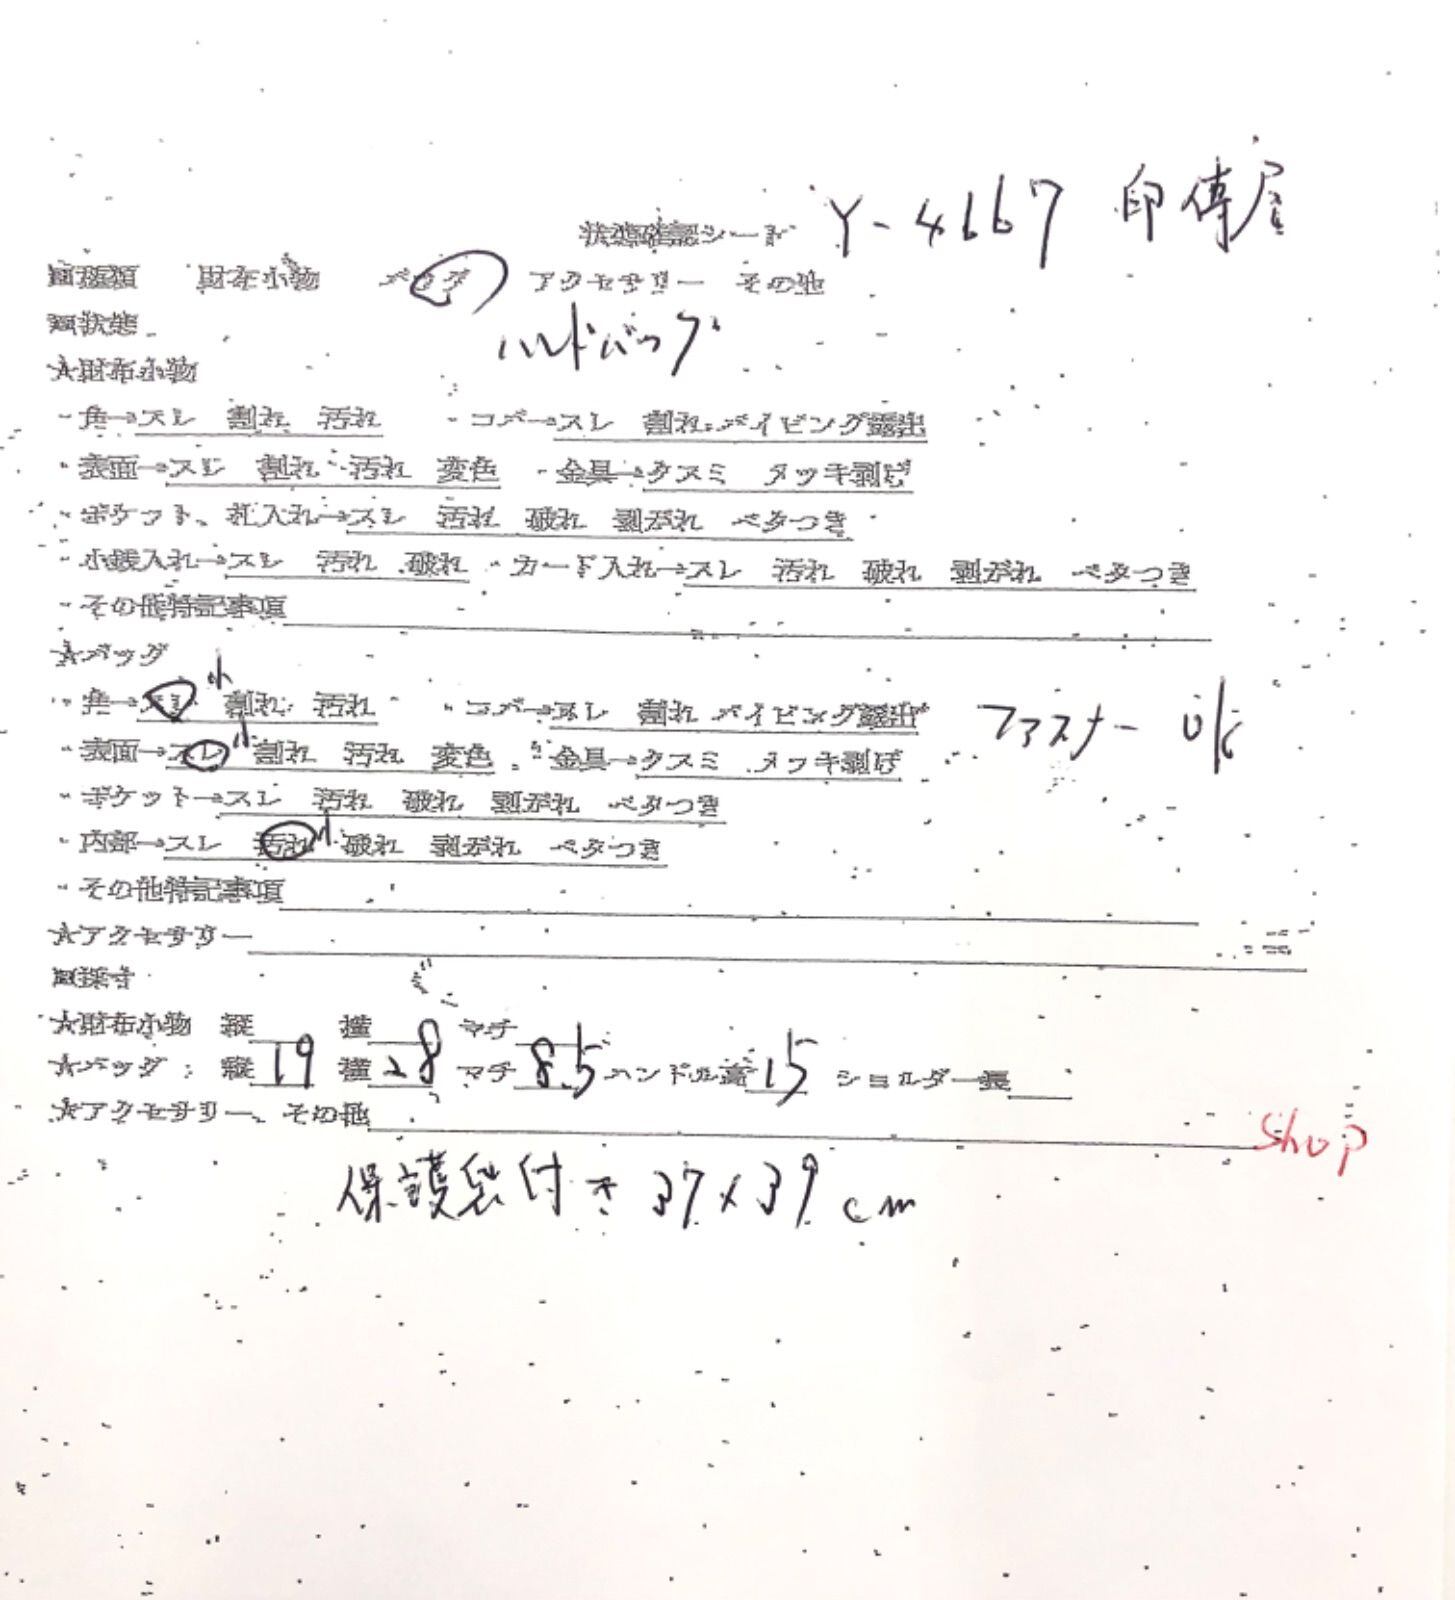 状態確認シート Y-4667 印傳屋
財布小物 バッグ アクセサリー その他
■状態 ハンドバッグ
★財布小物
・角→スレ 割れ 汚れ ・コバ→スレ 割れ パイピング露出
・表面→スレ 割れ 汚れ 変色 ・金具→クスミ メッキ剥げ
・ポケット、札入れ→スレ 汚れ 破れ 剥がれ ベタつき
・小銭入れ→スレ 汚れ 破れ ・カード入れ→スレ 汚れ 破れ 剥がれ ベタつき
・その他特記事項
★バッグ
・角→スレ小 割れ 汚れ ・コバ→スレ 割れ パイピング露出 ファスナー ok
・表面→スレ小 割れ 汚れ 変色 ・金具→クスミ メッキ剥げ
・ポケット→スレ 汚れ 破れ 剥がれ ベタつき
・内部→スレ 汚れ小 破れ 剥がれ ベタつき
・その他特記事項
★アクセサリー
■採寸
★財布小物 縦 横 マチ
★バッグ: 縦 19 横 28 マチ 8.5 ハンドル高 15 ショルダー長
★アクセサリー、その他
Shop
保護袋付き 37×39cm